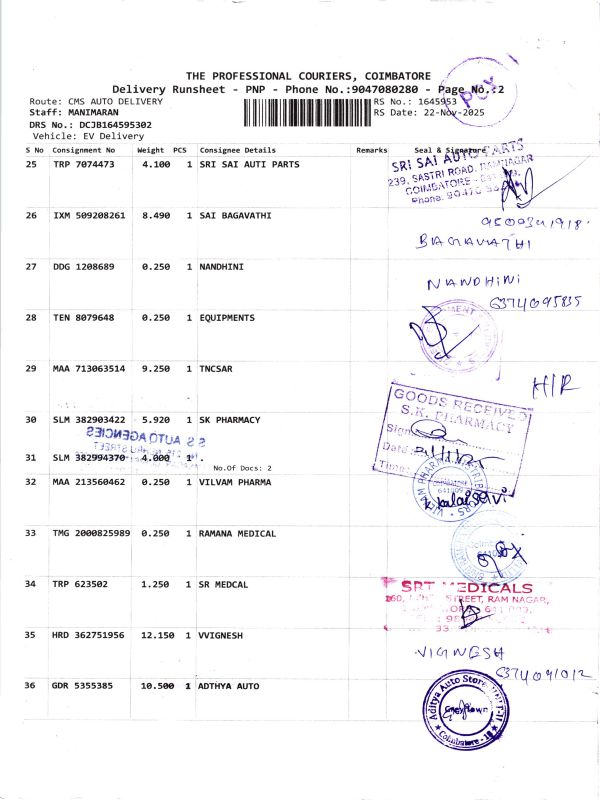 THE PROFESSIONAL COURIERS, COIMBATORE
Delivery Runsheet - PNP - Phone No.:9047080280 - Page No.:2
Route: CMS AUTO DELIVERY
RS No.: 1645953
Staff: MANIMARAN
RS Date: 22-Nov-2025
DRS No.: DCJB164595302
Vehicle: EV Delivery
S No Consignment No Weight PCS Consignee Details Remarks Seal & Signature
25 TRP 7074473 4.100 1 SRI SAI AUTI PARTS
SRI SAI AUTO PARTS
239, SASTRI ROAD, RAMNAGAR
COIMBATORE
Phone:
26 IXM 509208261 8.490 1 SAI BAGAVATHI
BAGAVATHI
27 DDG 1208689 0.250 1 NANDHINI
NANDHINI
6374095835
28 TEN 8079648 0.250 1 EQUIPMENTS
29 MAA 713063514 9.250 1 TNCSAR
H/R
30 SLM 382903422 5.920 1 SK PHARMACY
GOODS RECEIVED
S.K. PHARMACY
Sign
Date
Time:
S S AUTO AGENCIES
31 SLM 382994370 4.000 1 .
No.Of Docs: 2
32 MAA 213560462 0.250 1 VILVAM PHARMA
VILVAM PHARMA
kalaiselvi
33 TMG 2000825989 0.250 1 RAMANA MEDICAL
34 TRP 623502 1.250 1 SR MEDCAL
SRT MEDICALS
STREET, RAM NAGAR,
35 HRD 362751956 12.150 1 VVIGNESH
VIGNESH
36 GDR 5355385 10.500 1 ADTHYA AUTO
Aditya Auto Store
Coimbatore - 18